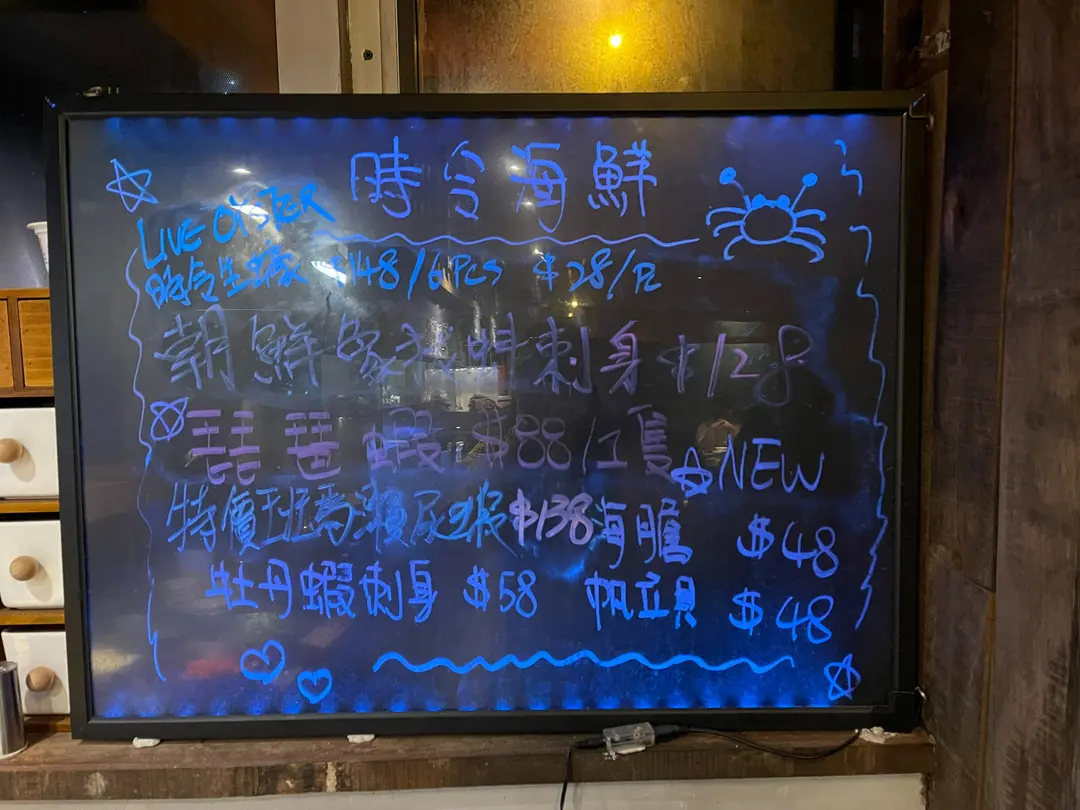 時令海鮮
LIVE OYSTER
時令生蠔 $148/6PCS $28/只
朝鮮象拔蚌刺身 $128
琵琶蝦 $88/1隻
NEW
特價班馬瀨尿蝦 $138 海膽 $48
牡丹蝦刺身 $58 帆立貝 $48